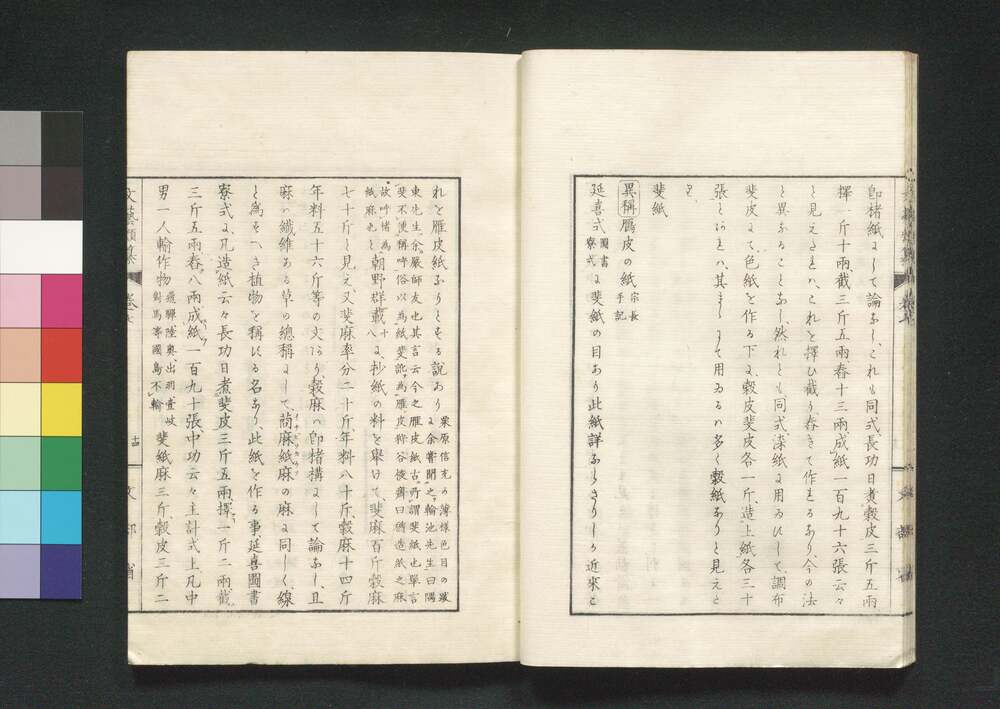 卽楮紙にして論なし、これも同式、長功日煮穀皮三斤五兩
擇一斤十兩、截三斤五兩、舂十三兩、成紙一百九十六張云々
と見えたれハ、これを擇ひ截り舂きて作れるなり、今の法
と異なることなし、然れとも、同式漆紙に用ゐひして、調布
斐皮にて、色紙を作る下に、穀皮斐皮各一斤、造上紙各三十
張とあれハ其まゝにて用ゐるハ多く穀紙なりと見えた
り
斐紙
異稱 鴈皮の紙 宗長手記
延喜式 圖書寮式 に斐紙の目あり此紙詳ならさりしか近來こ
れを雁皮紙なりとする說あり 栗原信充の薄様色目の跋
に余嘗聞之、輪池先生曰隅
東先生、余嚴師友也其言云今之雁皮紙古所謂斐紙也單言
斐不便稱呼俗以為紙斐訛為雁皮狩谷掖齋曰稱造紙之麻
故呼楮為
紙麻也と 朝野群載 十八 に、抄紙の料を擧けて、斐麻百斤穀麻
七十斤と見え、又斐麻率分二十斤、年料八十斤、穀麻十四斤
年料五十六斤等の文あり、穀麻ハ卽楮構にして論なし、且
麻ハ纖維ある草の總稱にして、䔛麻紙麻の麻に同しく、線
と為すへき植物を稱ひる名なり、此紙を作る事延喜圖書
寮式に、凡造紙云々長功日煮斐皮三斤五兩、擇一斤二兩、截
三斤五兩、舂八兩、成紙一百九十張、中功云々、主計式上凡中
男一人輸作物 飛驒陸奥出羽壹岐
對馬等國島不輸 斐紙麻三斤、穀皮三斤二
文藝類纂 卷七 十四 文部省